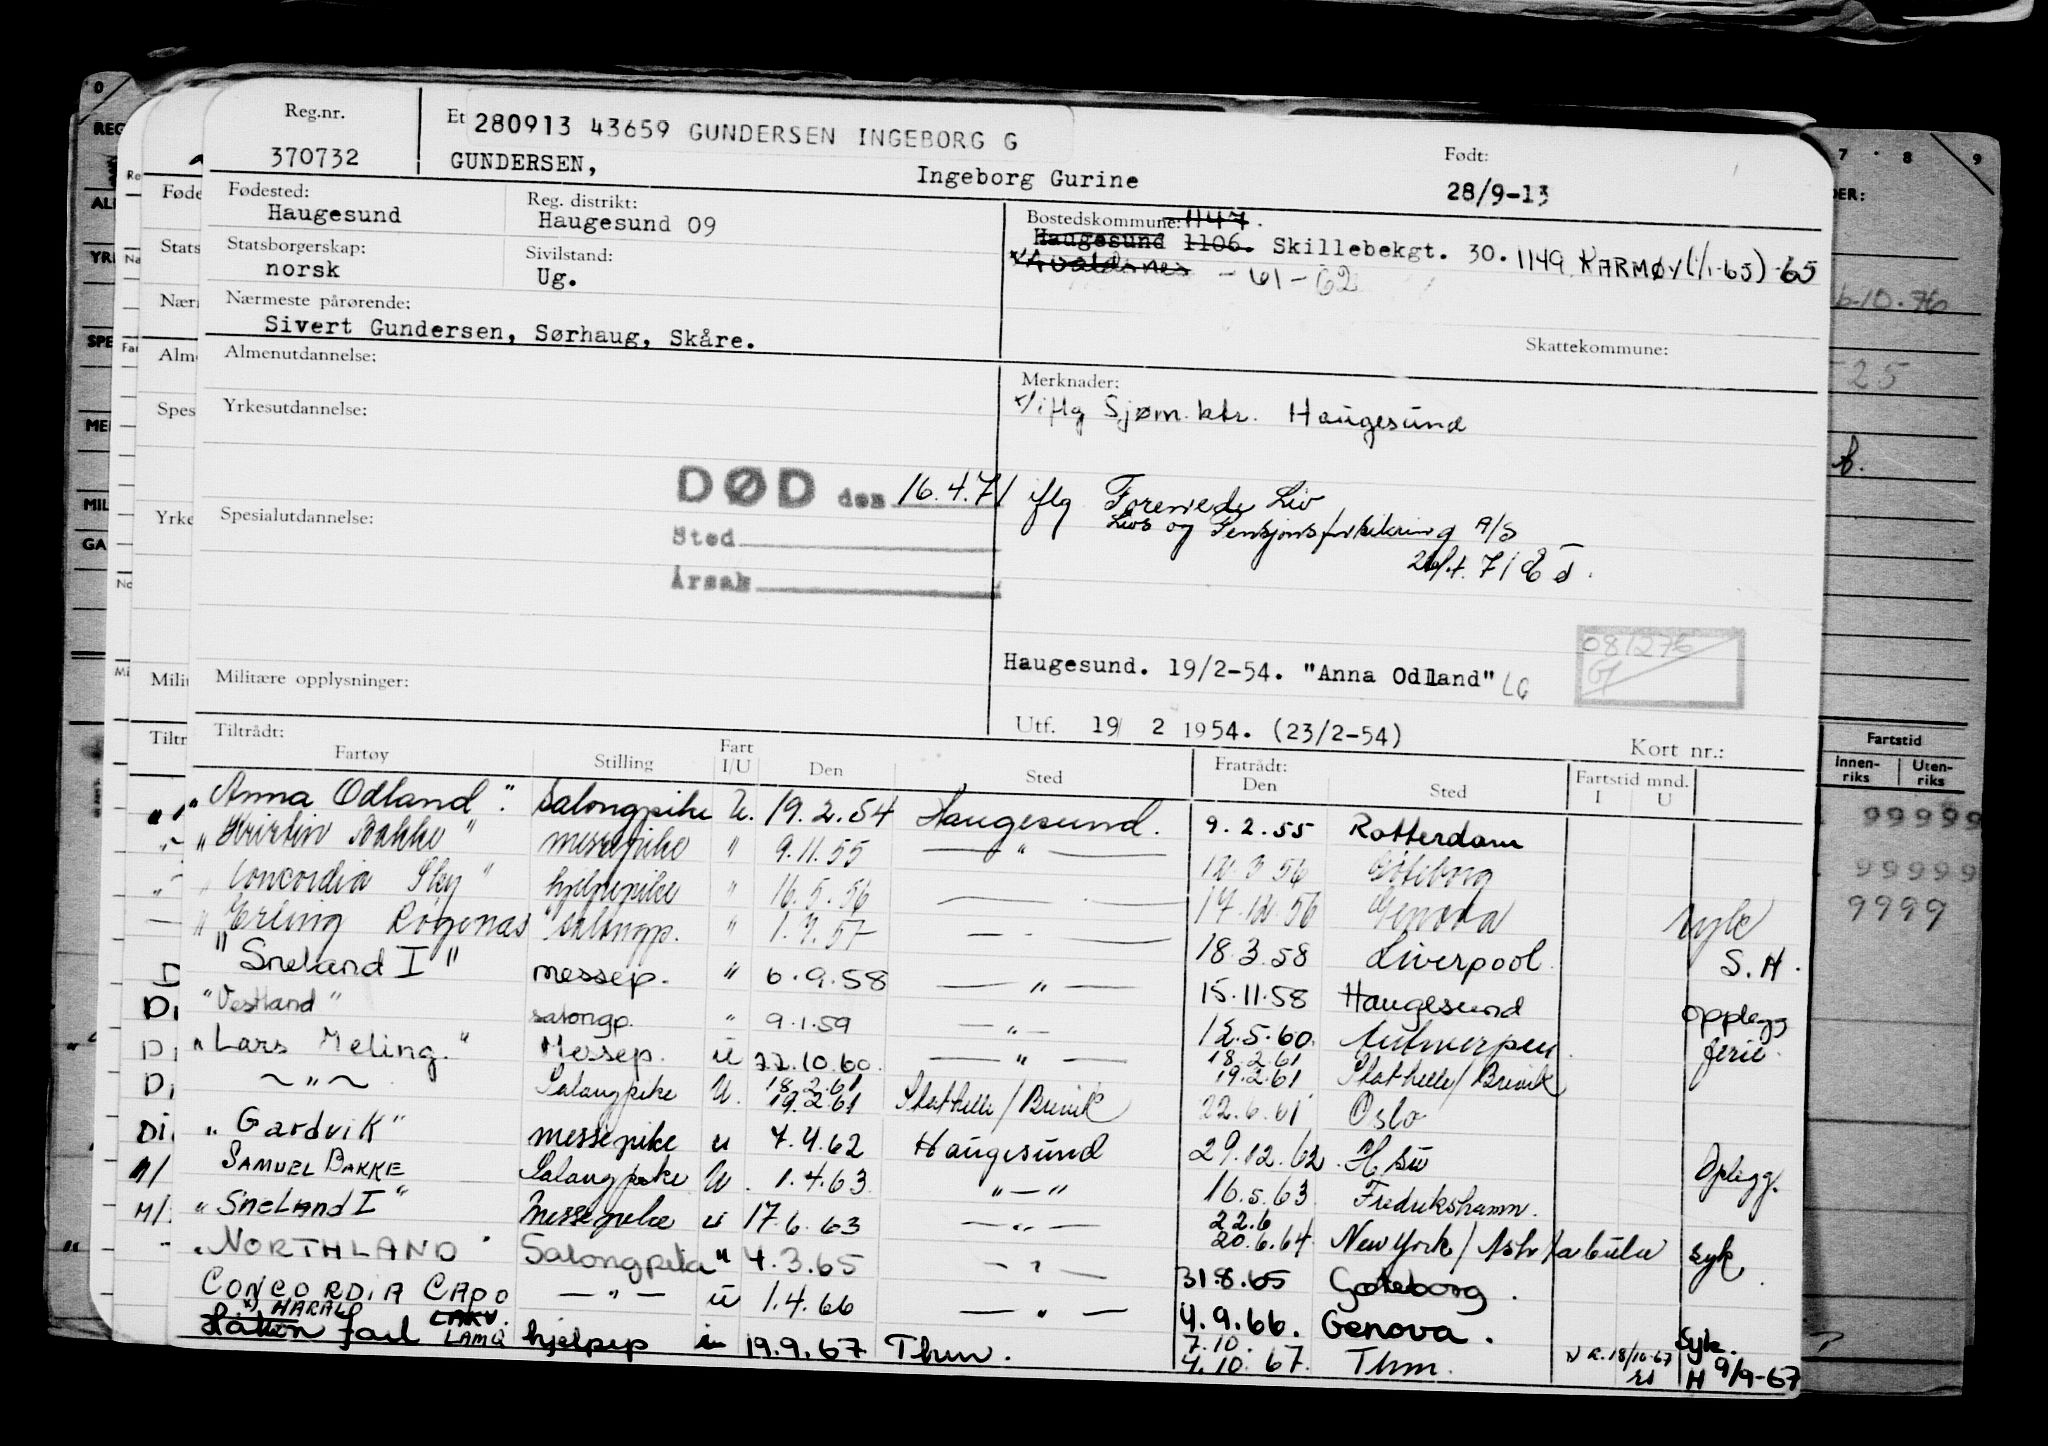 Reg.nr.
370732
Et
280913 43659 GUNDERSEN INGEBORG G
GUNDERSEN,
Ingeborg Gurine
Født:
28/9-13
Fødested:
Haugesund
Reg. distrikt:
Haugesund 09
Bostedskommune: 1147.
Haugesund 1106. Skillebekgt. 30. 1149 KARMØY (1/1-65) -65
x/ Avaldsnes - 61 - 62
Statsborgerskap:
norsk
Sivilstand:
Ug.
Nærmeste pårørende:
Sivert Gundersen, Sørhaug, Skåre.
Skattekommune:
Almenutdannelse:
Merknader:
x/ iflg Sjøm.ktr. Haugesund
Yrkesutdannelse:
DØD den 16.4.71
Sted
Årsak
iflg Forenede Liv
Livs og Pensjonsforsikring A/S
Spesialutdannelse:
081276
Haugesund. 19/2-54. "Anna Odland" LG
Militære opplysninger:
Utf. 19/ 2 1954. (23/2-54)
Kort nr.:
Tiltrådt:
Fartøy Stilling Fart I/U Den Sted Fratrådt: Den Sted Fartstid mnd. I U
"Anna Odland". Salongpike U. 19.2.54 Haugesund. 9.2.55 Rotterdam
"Kristin Bakke" messepike " 9.11.55 — " — 12.3.56 Göteborg
Concordia Sky " hjelpepike " 16.5.56 — 17.12.56 Genova syk
"Erling Rogenæs salongp. " 1.7.57 — 18.3.58 Liverpool S.H.
"Sneland I" messep. " 6.9.58 — " — 15.11.58 Haugesund opplegg
"Vestland" salongp. " 9.1.59 — " — 12.5.60. Antwerpen ferie.
"Lars Meling." Messep. u 22.10.60. — " — 18.2.61 19.2.61 Stathelle/Brevik
~ " ~ Salongpike U. 18.2.61 19.2.61 Stathelle/Brevik 22.6.61 Oslo
"Gardvik" messepike u 7.4.62 Haugesund 29.12.62. H.su Oplegg.
SAMUEL BAKKE Salongpike U. 1.4.63. " — " 16.5.63. Fredrikshamn.
"SNELAND I" Messepike u 17.6.63 — " — 22.6 20.6.64 New York/Ashtabula syk
"NORTHLAND" Salongpike " 4.3.65 — " — 31.8.65 Gøteborg.
CONCORDIA CAPO — " — u 1.4.66 — " — 4.9.66. Genova. Syk.
x) HARALD
Jarl LAMQ hjelpep i 19.9.67 Thm. 7.10. 4.10.67. Thm. N R. 18/10-67 H 9/9-67
Fartstid
Innen-riks
Uten-riks
99999
99999
9999